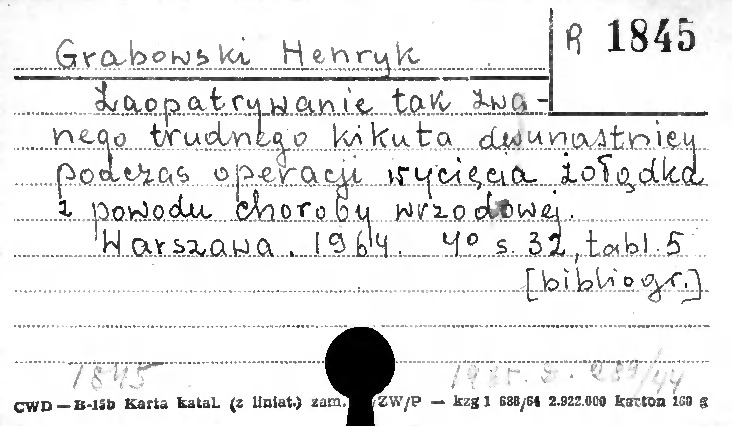 Grabowski Henryk
R 1845
Zaopatrywanie tak zwa-
nego trudnego kikuta dwunastnicy
podczas operacji wycięcia żołądka
z powodu choroby wrzodowej.
Warszawa. 1964. 4° s. 32, tabl. 5
[bibliogr.]
1845
CWD — B-15b Karta katal. (z liniat.) zam. ZW/P — kzg 1 688/64 2.922.000 karton 160 g